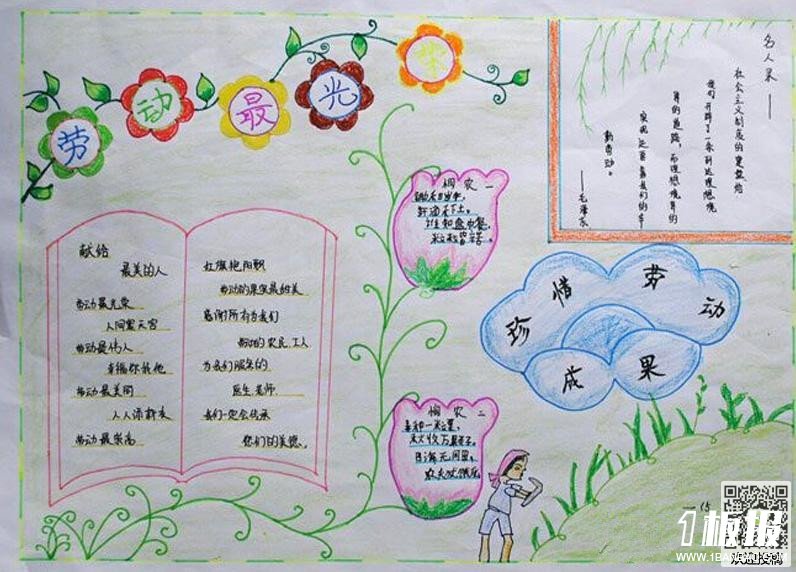 劳动最光荣
名人录——
社会主义制度的建立给
我们开辟了一条到达理想境
界的道路,而理想境界的
实现还要靠我们的辛
勤劳动。
——毛泽东
献给
最美的人
劳动最光荣
人间繁天宫
劳动最伟人
幸福你我他
劳动最美丽
人人添新衣
劳动最崇高
红旗艳阳飘
劳动的果实最甜美
感谢所有为我们
的农民 工人
为我们服务的
医生 老师
我们一定会传承
您们的美德。
悯农一
锄禾日当午,
汗滴禾下土。
谁知盘中餐,
粒粒皆辛苦。
悯农二
春种一粒粟,
秋收万颗子。
四海无闲田,
农夫犹饿死。
珍惜劳动
成果
15
1板报
WWW.1BANBAO.COM
欢迎投稿